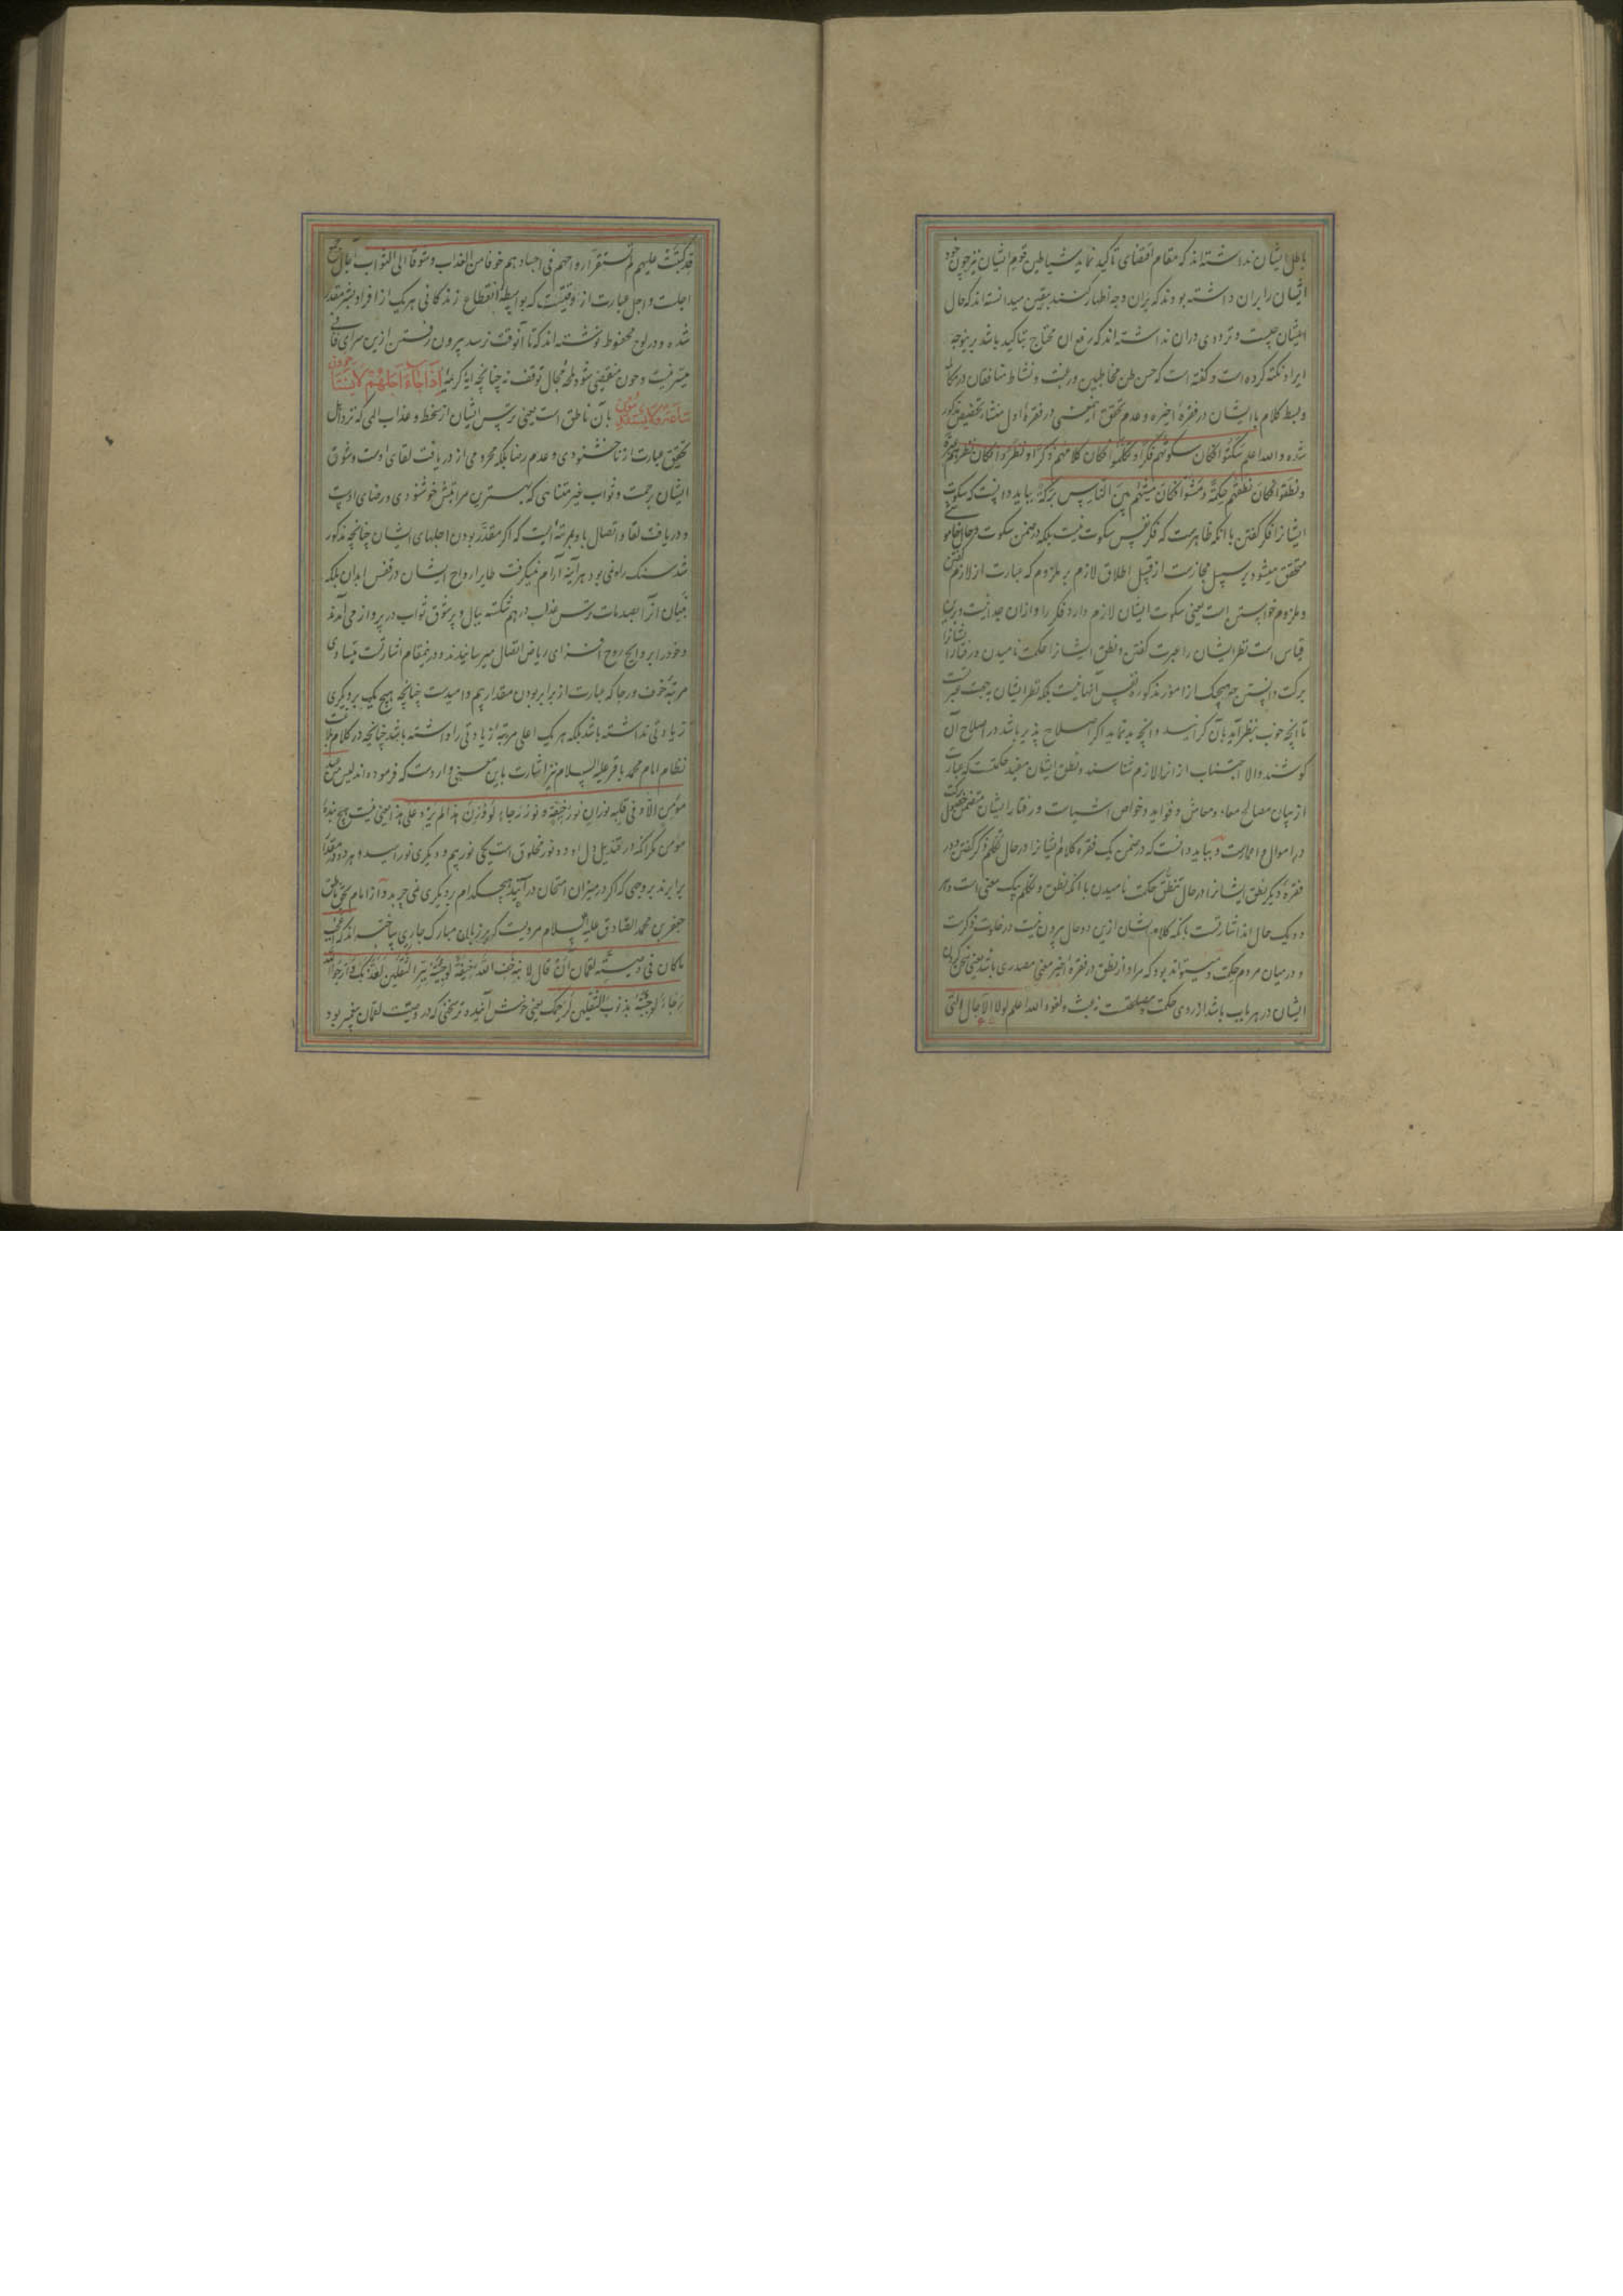 باطل ایشان نداشته‌اند که مقام اقتضای تاکید نماید شیاطین قوم ایشان نیز چون خود
ایشان را بران داشته بودند که بران وجه اظهار کنند بیقین میدانسته‌اند که حال
ایشان چیست و ترددی دران نداشته‌اند که رفع ان محتاج بتاکید باشد برینوجه
ایراد نکته کرده است و گفته است که حسن ظن مخاطبین و رغبت و نشاط منافقان در مکالمه
و بسط کلام با ایشان در فقره اخیره و عدم تحقق آنمعنی در فقره اول منشاء تخصیص مذکور
شده والله اعلم سکتوا فکان سکوتهم فکرا و تکلموا فکان کلامهم ذکرا و نظروا فکان نظرهم عبرة
و نطقوا فکان نطقهم حکمة و مشوا فکان مشیهم بین الناس برکة بباید دانست که سکوت
ایشانرا فکر گفتن با آنکه ظاهرست که فکر نفس سکوت نیست بلکه در ضمن سکوت و حال خاموشی
متحقق میشود بر سبیل مجازست از قبیل اطلاق لازم بر ملزوم که عبارت از لازم گفتن
و ملزوم خواستن است یعنی سکوت ایشان لازم دارد فکر را و ازان جدا نیست و برین
قیاس است نظر ایشان را عبرت گفتن و نطق ایشانرا حکمت نامیدن و رفتار ایشانرا
برکت دانستن چه هیچیک از امور مذکوره نفس آنها نیست بلکه نظر ایشان بجهت عبرتست
تا انچه خوب بنظر آید بآن گرایند و انچه بد نماید اگر اصلاح پذیر باشد در اصلاح آن
کوشند والا اجتناب از انرا لازم شناسند و نطق ایشان مفید حکمتست که عبارت
از بیان مصالح معاد و معاش و فواید و خواص اشیاست و رفتار ایشان متضمن حصول برکت
در اموال و اعمارست و بباید دانست که در ضمن یک فقره کلام ایشانرا در حال تکلم ذکر گفتن و در
فقره دیگر نطق ایشانرا در حال تنطق حکمت نامیدن با آنکه نطق و تکلم بیک معنی است و هر
دو یک حال‌اند اشارتست بآنکه کلام ایشان ازین دو حال بیرون نیست در خلوت ذکرست
و در میان مردم حکمت و میتواند بود که مراد از نطق در فقره اخیر معنی مصدری باشد یعنی سخن کردن
ایشان در هر باب باشد از روی حکمت و مصلحتست نه عبث و لغو والله اعلم لولا الآجال التی
قد کتبت علیهم لم تستقر ارواحهم فی اجسادهم خوفا من العذاب و شوقا الی الثواب آجال جمع
اجلست و اجل عبارت از وقتیست که بواسطه انقطاع زندگانی هریک از افراد بشر مقدر
شده و در لوح محفوظ نوشته‌اند که تا آنوقت نرسد بیرون رفتن ازین سرای فانی
میسر نیست و چون منقضی شود لمحهٔ مجال توقف نه چنانچه آیه کریمه اذا جاء اجلهم لا یستاخرون
ساعة و لا یستقدمون بآن ناطق است یعنی ترس ایشان از سخط و عذاب الهی که نزد اهل
تحقیق عبارت از ناخشنودی و عدم رضا بلکه محرومی از دریافت لقای اوست و شوق
ایشان برحمت و ثواب غیر متناهی که بهترین مراتبش خوشنودی و رضای اوست
و دریافت لقا و اتصال باو بمرتبه‌ایست که اگر مقدر بودن اجلهای ایشان چنانچه مذکور
شد سنگ راه نمی‌بود هرآینه آرام نمیگرفت طایر ارواح ایشان در قفس ابدان بلکه
بنیان آنرا بصدمات ترس عذاب درهم شکسته ببال و پر شوق ثواب در پرواز می‌آمدند
و خود را بروایح روح افزای ریاض اتصال میرسانیدند و درینمقام اشارتست بتساوی
مرتبه خوف و رجا که عبارت از برابر بودن مقدار بیم و امیدست چنانچه هیچ یک بر دیگری
زیادتی نداشته باشد بلکه هر یک اعلی مرتبه زیادتی را داشته باشد چنانچه در کلام بلاغت
نظام امام محمد باقر علیه السلام نیز اشارت باین معنی واردست که فرموده‌اند لیس من عبد
مؤمن الا و فی قلبه نوران نور خیفة و نور رجاء لو وزن هذا لم یزد علی هذا یعنی نیست هیچ بندهٔ
مومن مگر آنکه در قندیل دل او دو نور مخلوق است یکی نور بیم و دیگری نور امید و هر دو در مقدار
برابرند بروجهی که اگر در میزان امتحان درآیند هیچکدام بر دیگری نمی‌چربد و از امام بحق ناطق
جعفر بن محمد الصادق علیه السلام مرویست که بر زبان مبارک جاری ساخته‌اند که اعجب
ماکان فی وصیته لقمان أن قال لابنه خف الله خیفة لو جئته ببر الثقلین لعذبک و ارج الله
رجاء لو جئته بذنوب الثقلین لرحمک یعنی خوش آینده‌تر سخنی که در وصیت لقمان بپسر بود